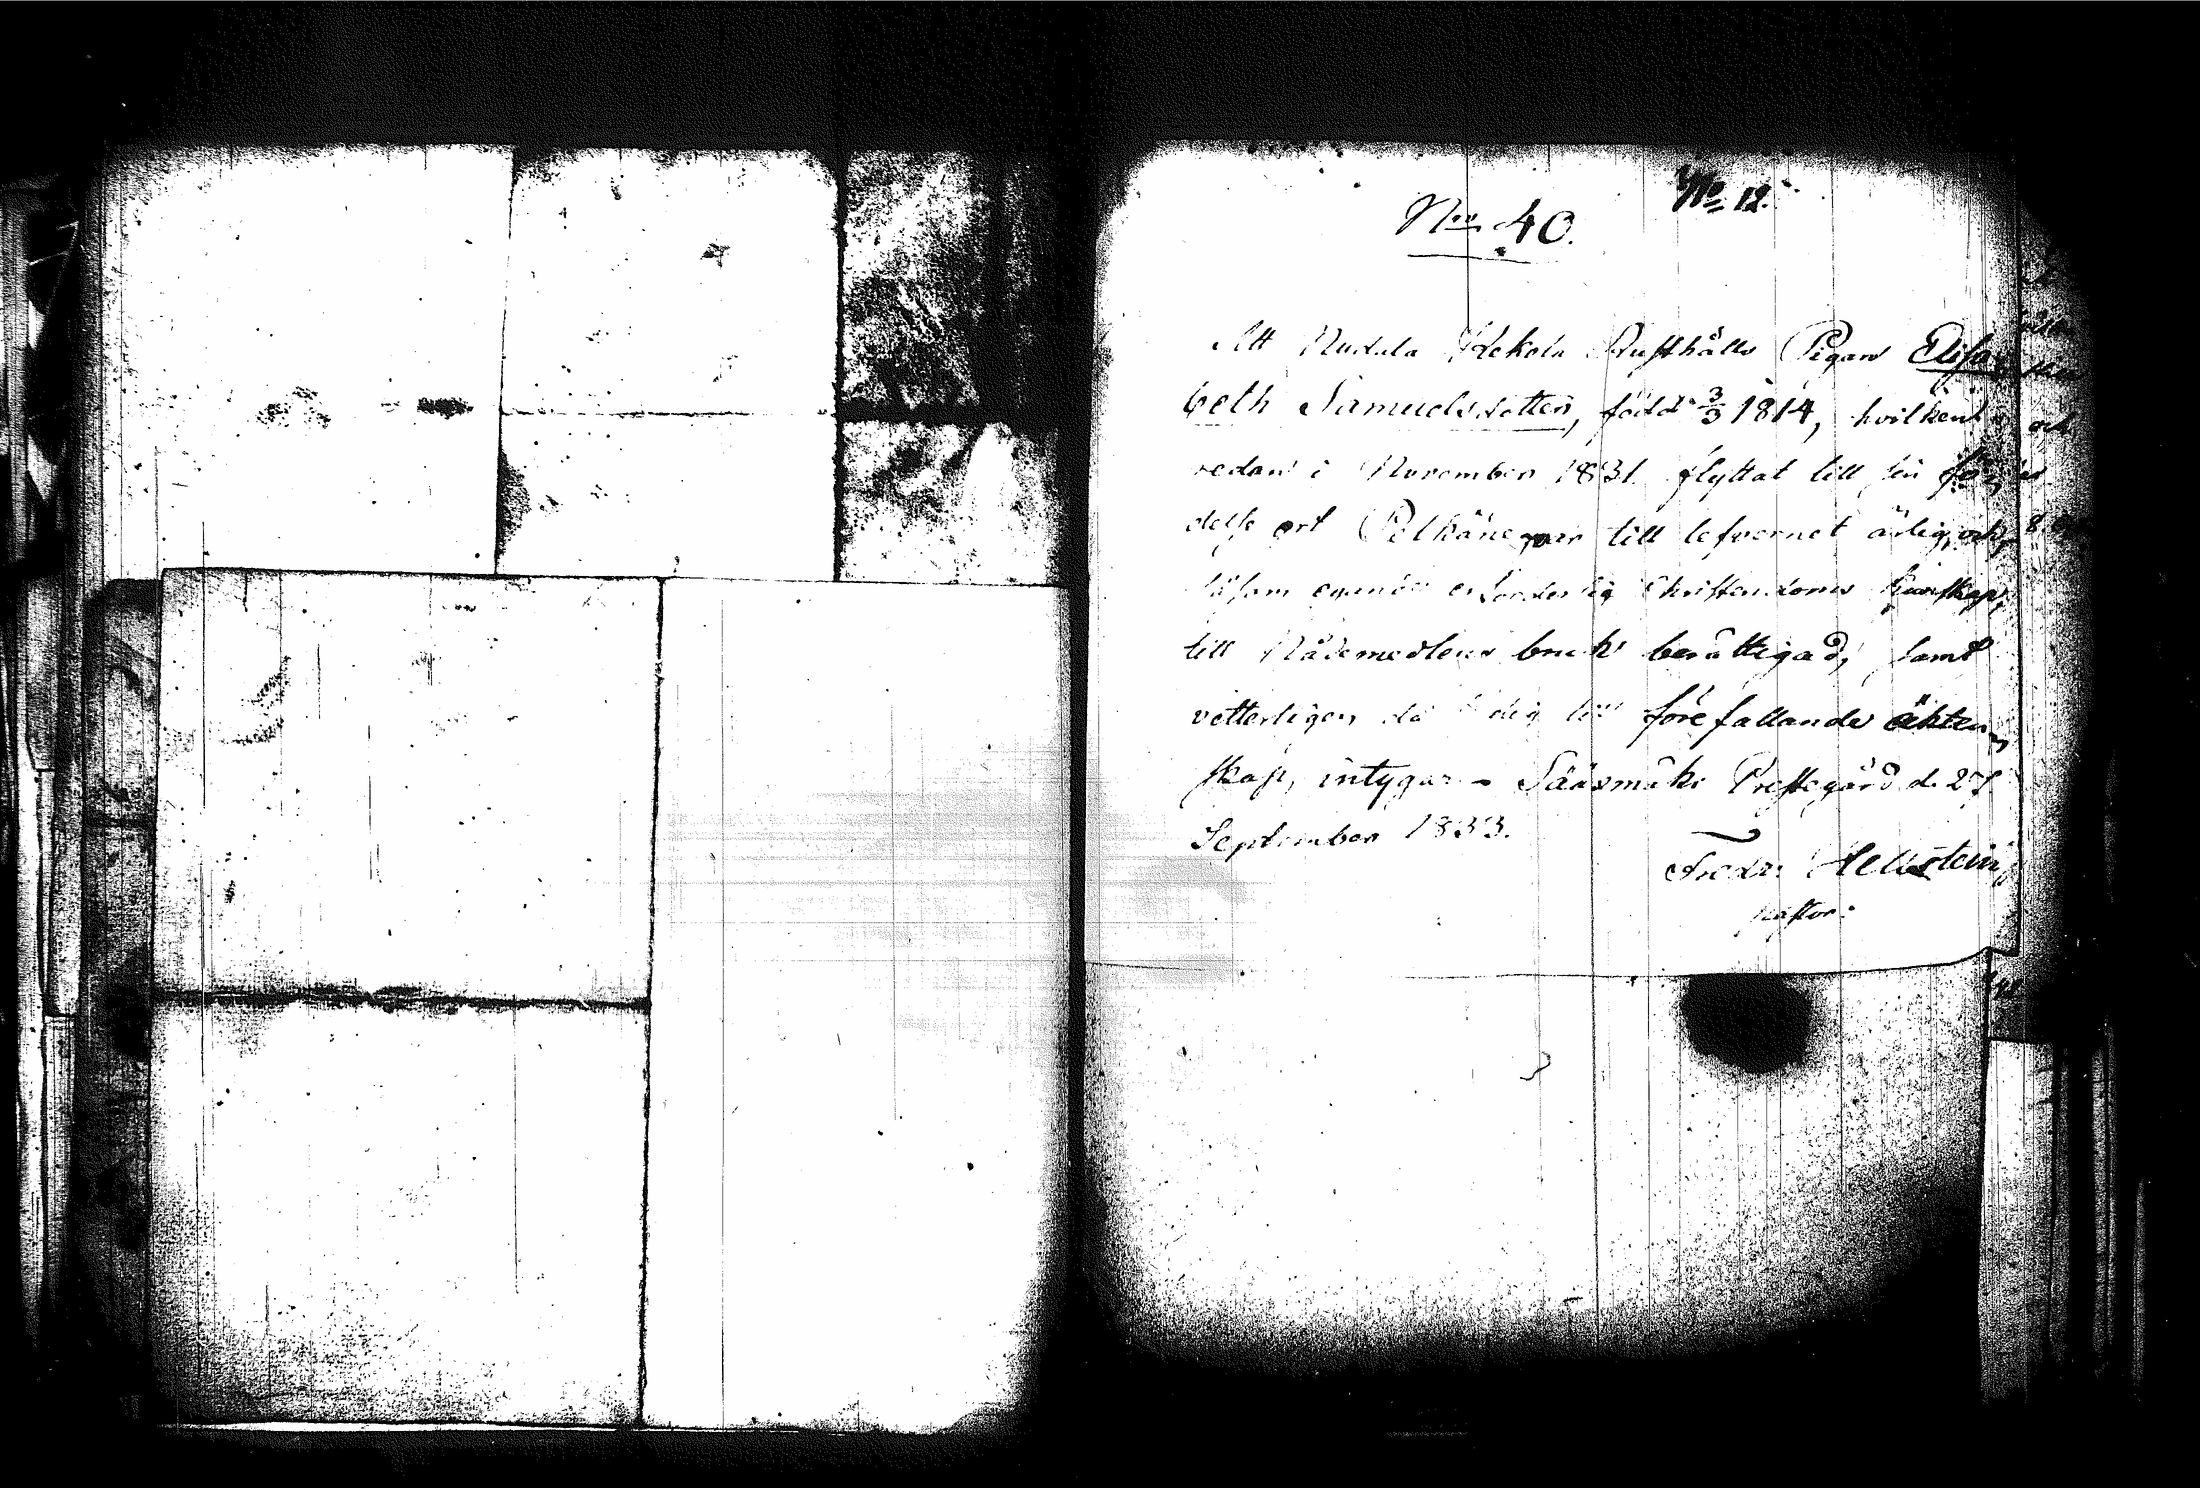 No 40. No 12.
Att Rudala Hekola Rusthålls Pigan Elisa
beth Samuelsdotter, född 3/3 1814, hvilken
redan i November 1831 flyttat till sin föd
else ort Pelkäne är till lefvernet ärlig, och
erforderlig Christendoms kunskap,
till Nådemedlens bruk berättigad, samt
vetterligen till förefallande äkten
skap, intygar - Sääxmäki Prestegård d. 27
September 1833.
Fredr: Hellstein,
pastor.